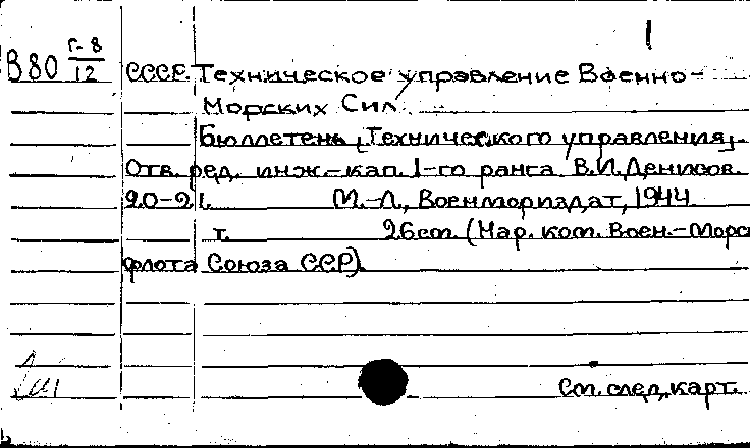 1
В80 Г-8/12 СССР. Техническое управление Военно-
Морских Сил.
Бюллетень [Технического управления].
Отв. ред. инж.-кап. 1-го ранга В.И. Денисов.
20-21. М.-Л., Военмориздат, 1944
т. 26 cm. (Нар. ком. Воен.-Морс
флота Союза ССР).
См. след. карт.